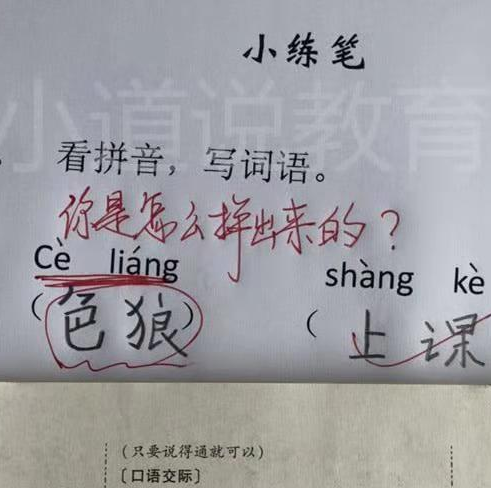 小练笔
小道说教育
看拼音，写词语。
你是怎么拼出来的？
Cè liáng shàng kè
(色狼) (上课
(只要说得通就可以)
〔口语交际〕